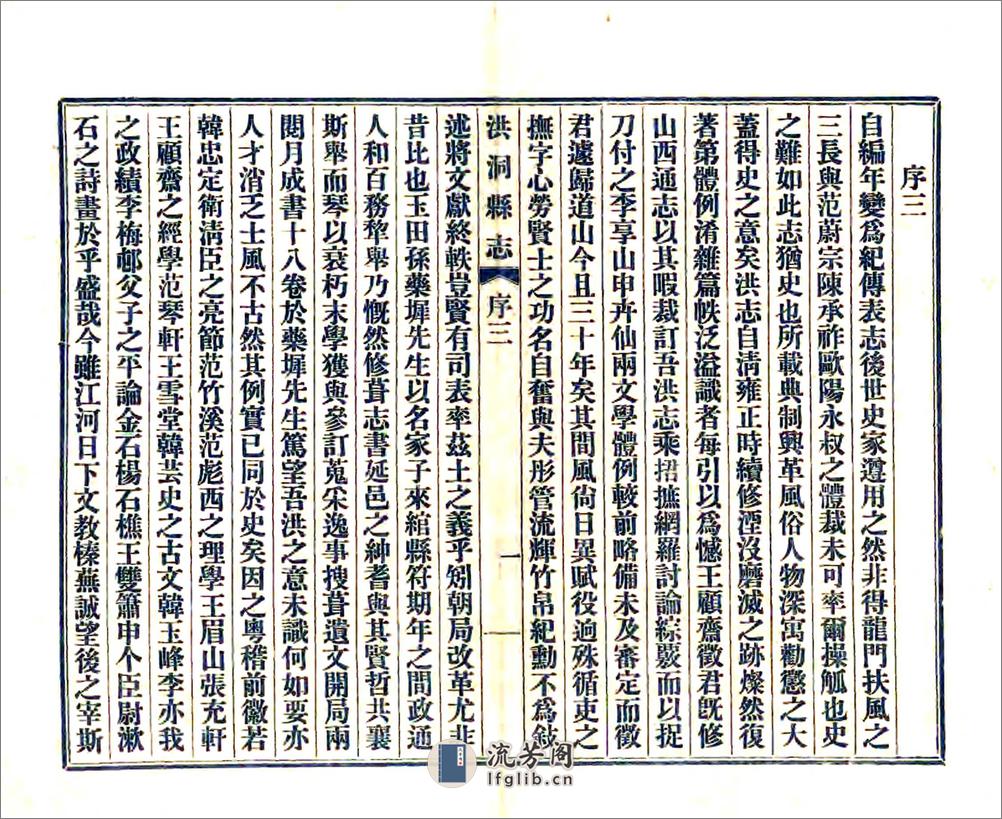 序三
自編年變爲紀傳表志後世史家遵用之然非得龍門扶風之
三長與范蔚宗陳承祚歐陽永叔之體裁未可率爾操觚也史
之難如此志猶史也所載典制興革風俗人物深寓勸懲之大
蓋得史之意矣洪志自淸雍正時續修湮沒磨滅之跡燦然復
著第體例淆雜篇帙泛溢識者每引以爲憾王顧齋徵君旣修
山西通志以其暇裁訂吾洪志乘捃摭網羅討論綜覈而以捉
刀付之李享山申卉仙兩文學體例較前略備未及審定而徵
君遽歸道山今且三十年矣其間風尙日異賦役逈殊循吏之
撫字心勞賢士之功名自奮與夫彤管流輝竹帛紀勳不爲敍
洪洞縣志
序三
一
述將文獻終軼豈賢有司表率茲土之義乎矧朝局改革尤非
昔比也玉田孫藥墀先生以名家子來綰縣符期年之間政通
人和百務犂舉乃慨然修葺志書延邑之紳耆與其賢哲共襄
斯舉而琴以衰朽末學獲與參訂蒐采逸事搜葺遺文開局兩
閱月成書十八卷於藥墀先生篤望吾洪之意未識何如要亦
人才消乏士風不古然其例實已同於史矣因之粵稽前徽若
韓忠定衛淸臣之亮節范竹溪范彪西之理學王眉山張充軒
王顧齋之經學范琴軒王雪堂韓芸史之古文韓玉峰李亦我
之政績李梅邨父子之平論金石楊石樵王雙簫申个臣尉漱
石之詩畫於乎盛哉今雖江河日下文教榛蕪誠望後之宰斯
流芳阁
lfglib.cn